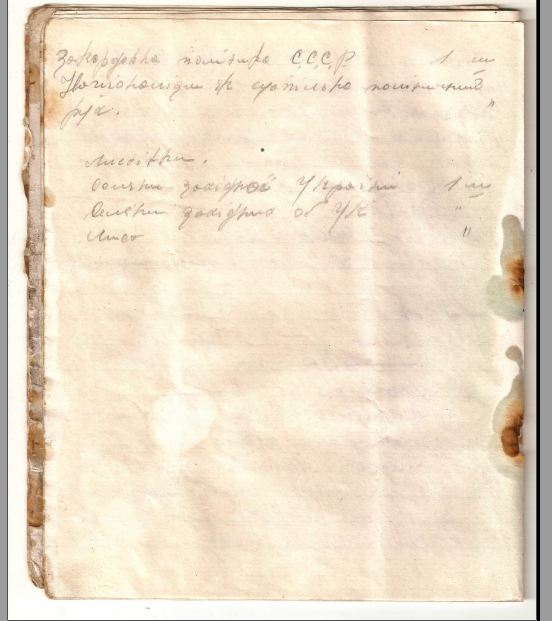 Закордонна політика С.С.С.Р. 1 ш
Націоналізм як суспільно політичний
рух. "
Листівки.
Селяни західної України 1 ш
Селяни західних об УК "
"